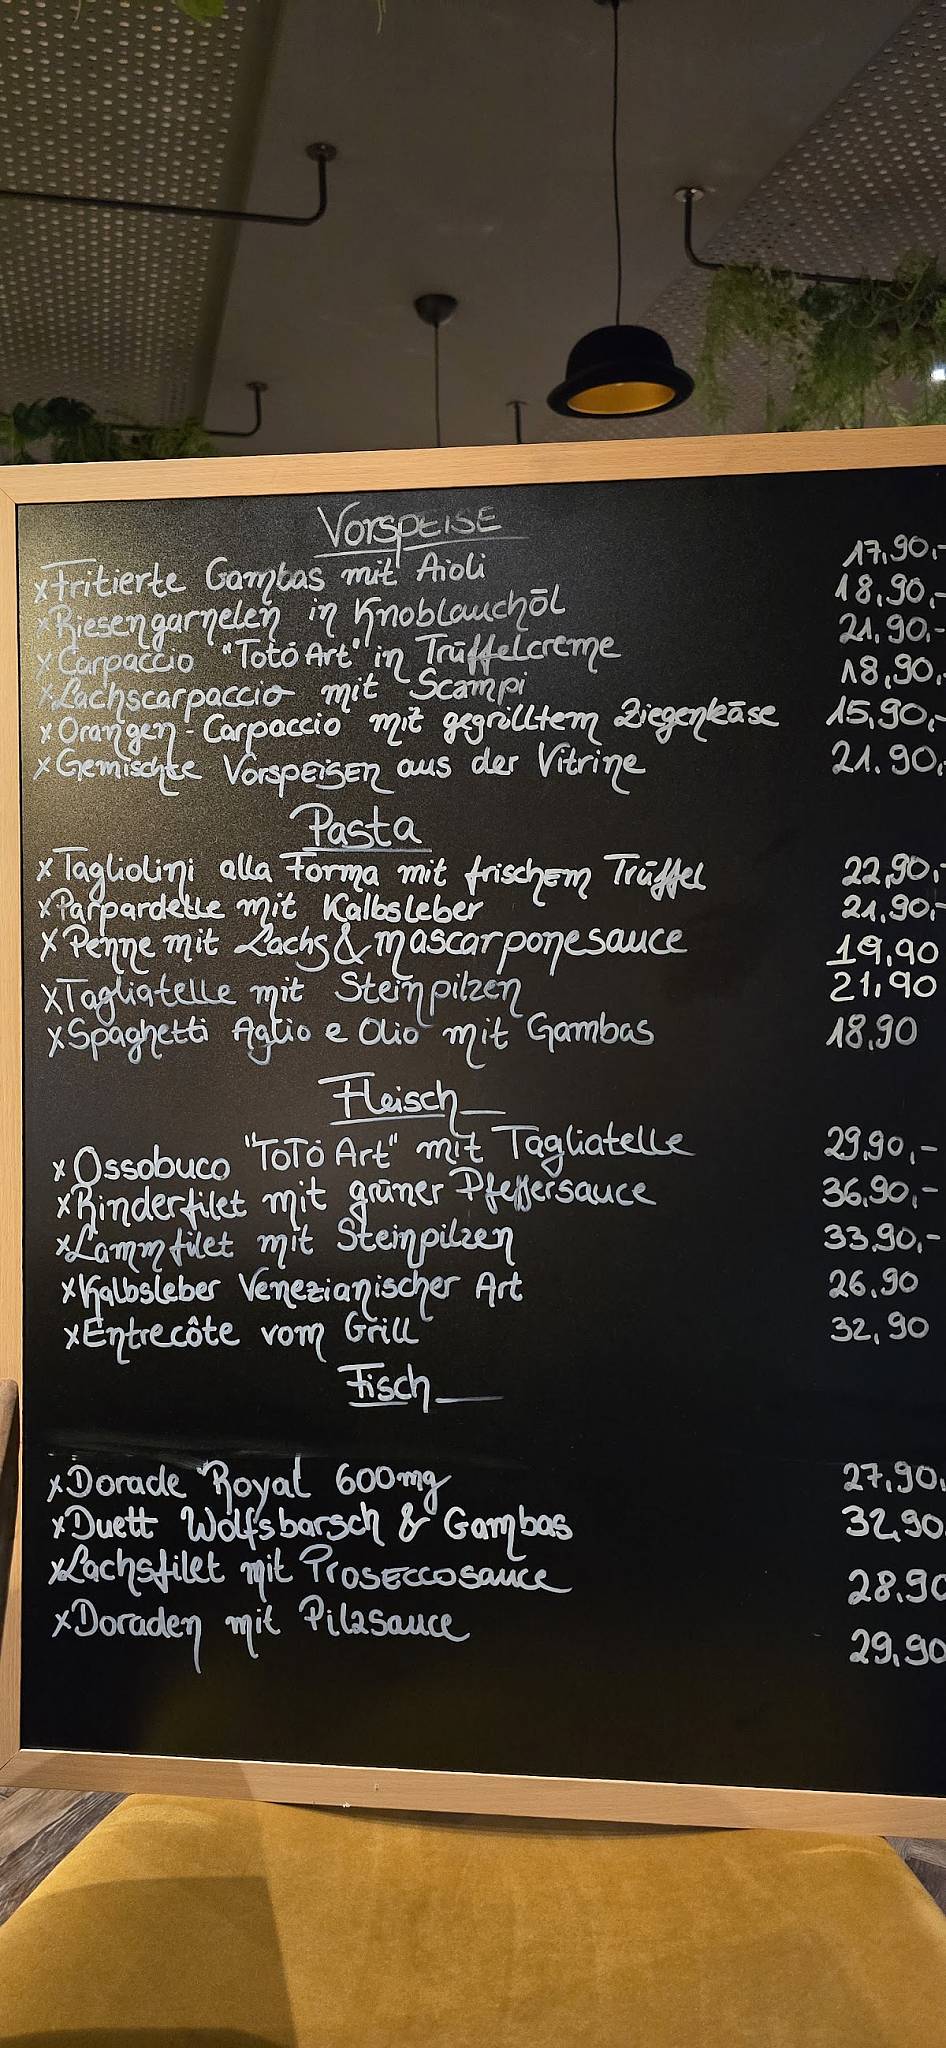 Vorspeise
x Fritierte Gambas mit Aioli 17,90,-
x Riesengarnelen in Knoblauchöl 18,90,-
x Carpaccio "Totó Art" in Trüffelcreme 21,90,-
x Lachscarpaccio mit Scampi 18,90,-
x Orangen-Carpaccio mit gegrilltem Ziegenkäse 15,90,-
x Gemischte Vorspeisen aus der Vitrine 21.90,
Pasta
x Tagliolini alla Forma mit frischem Trüffel 22,90,-
x Parpardelle mit Kalbsleber 21,90,-
x Penne mit Lachs & mascarponesauce 19,90
x Tagliatelle mit Steinpilzen 21,90
x Spaghetti Aglio e Olio mit Gambas 18,90
Fleisch
x Ossobuco "Totó Art" mit Tagliatelle 29,90,-
x Rinderfilet mit grüner Pfeffersauce 36,90,-
x Lammfilet mit Steinpilzen 33,90,-
x Kalbsleber Venezianischer Art 26,90
x Entrecôte vom Grill 32,90
Fisch
x Dorade Royal 600mg 27,90,
x Duett Wolfsbarsch & Gambas 32,90
x Lachsfilet mit Proseccosauce 28,90
x Doraden mit Pilzsauce 29,90